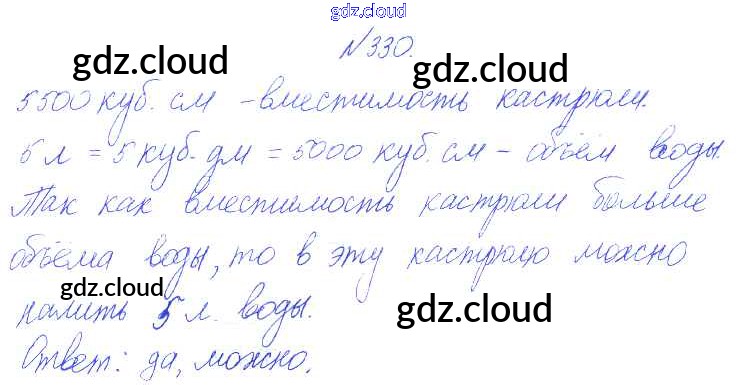 gdz.cloud
№330.
gdz.cloud gdz.cloud
5500 куб. см - вместимость кастрюли.
5 л = 5 куб. дм = 5000 куб. см - объём воды.
gdz.cloud gdz.cloud
Так как вместимость кастрюли больше
объёма воды, то в эту кастрюлю можно
gdz.cloud gdz.cloud
налить 5 л. воды.
Ответ: да, можно.